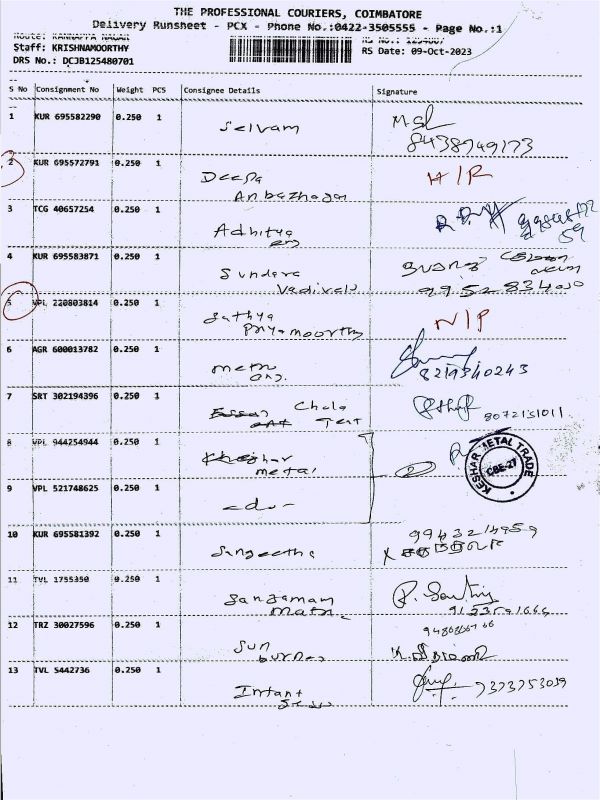 THE PROFESSIONAL COURIERS, COIMBATORE
Delivery Runsheet - PCX - Phone No.:0422-3505555 - Page No.:1
Route: KANNAPPA NAGAR
Staff: KRISHNAMOORTHY RS Date: 09-Oct-2023
DRS No.: DCJB125480701
S No Consignment No Weight PCS Consignee Details Signature
1 KUR 695582290 0.250 1 Selvam
8438949173
2 KUR 695572791 0.250 1 Deepa
Anbazhagan
3 TCG 40657254 0.250 1 Adhitya
4 KUR 695583871 0.250 1 Sundara
Vadivelu 9952834020
5 VPL 220803814 0.250 1 Sathya N/P
Priyamoorthy
6 AGR 600013782 0.250 1
7 SRT 302194396 0.250 1 Chola 8072151011.
8 VPL 944254944 0.250 1 metal 2 KESHAR METAL TRADE
CBE-27
9 VPL 521748625 0.250 1 -do-
10 KUR 695581392 0.250 1 Sangeetha 9943214959
11 TVL 1755350 0.250 1
12 TRZ 30027596 0.250 1 Sun
13 TVL 5442736 0.250 1 Infant 7373753039